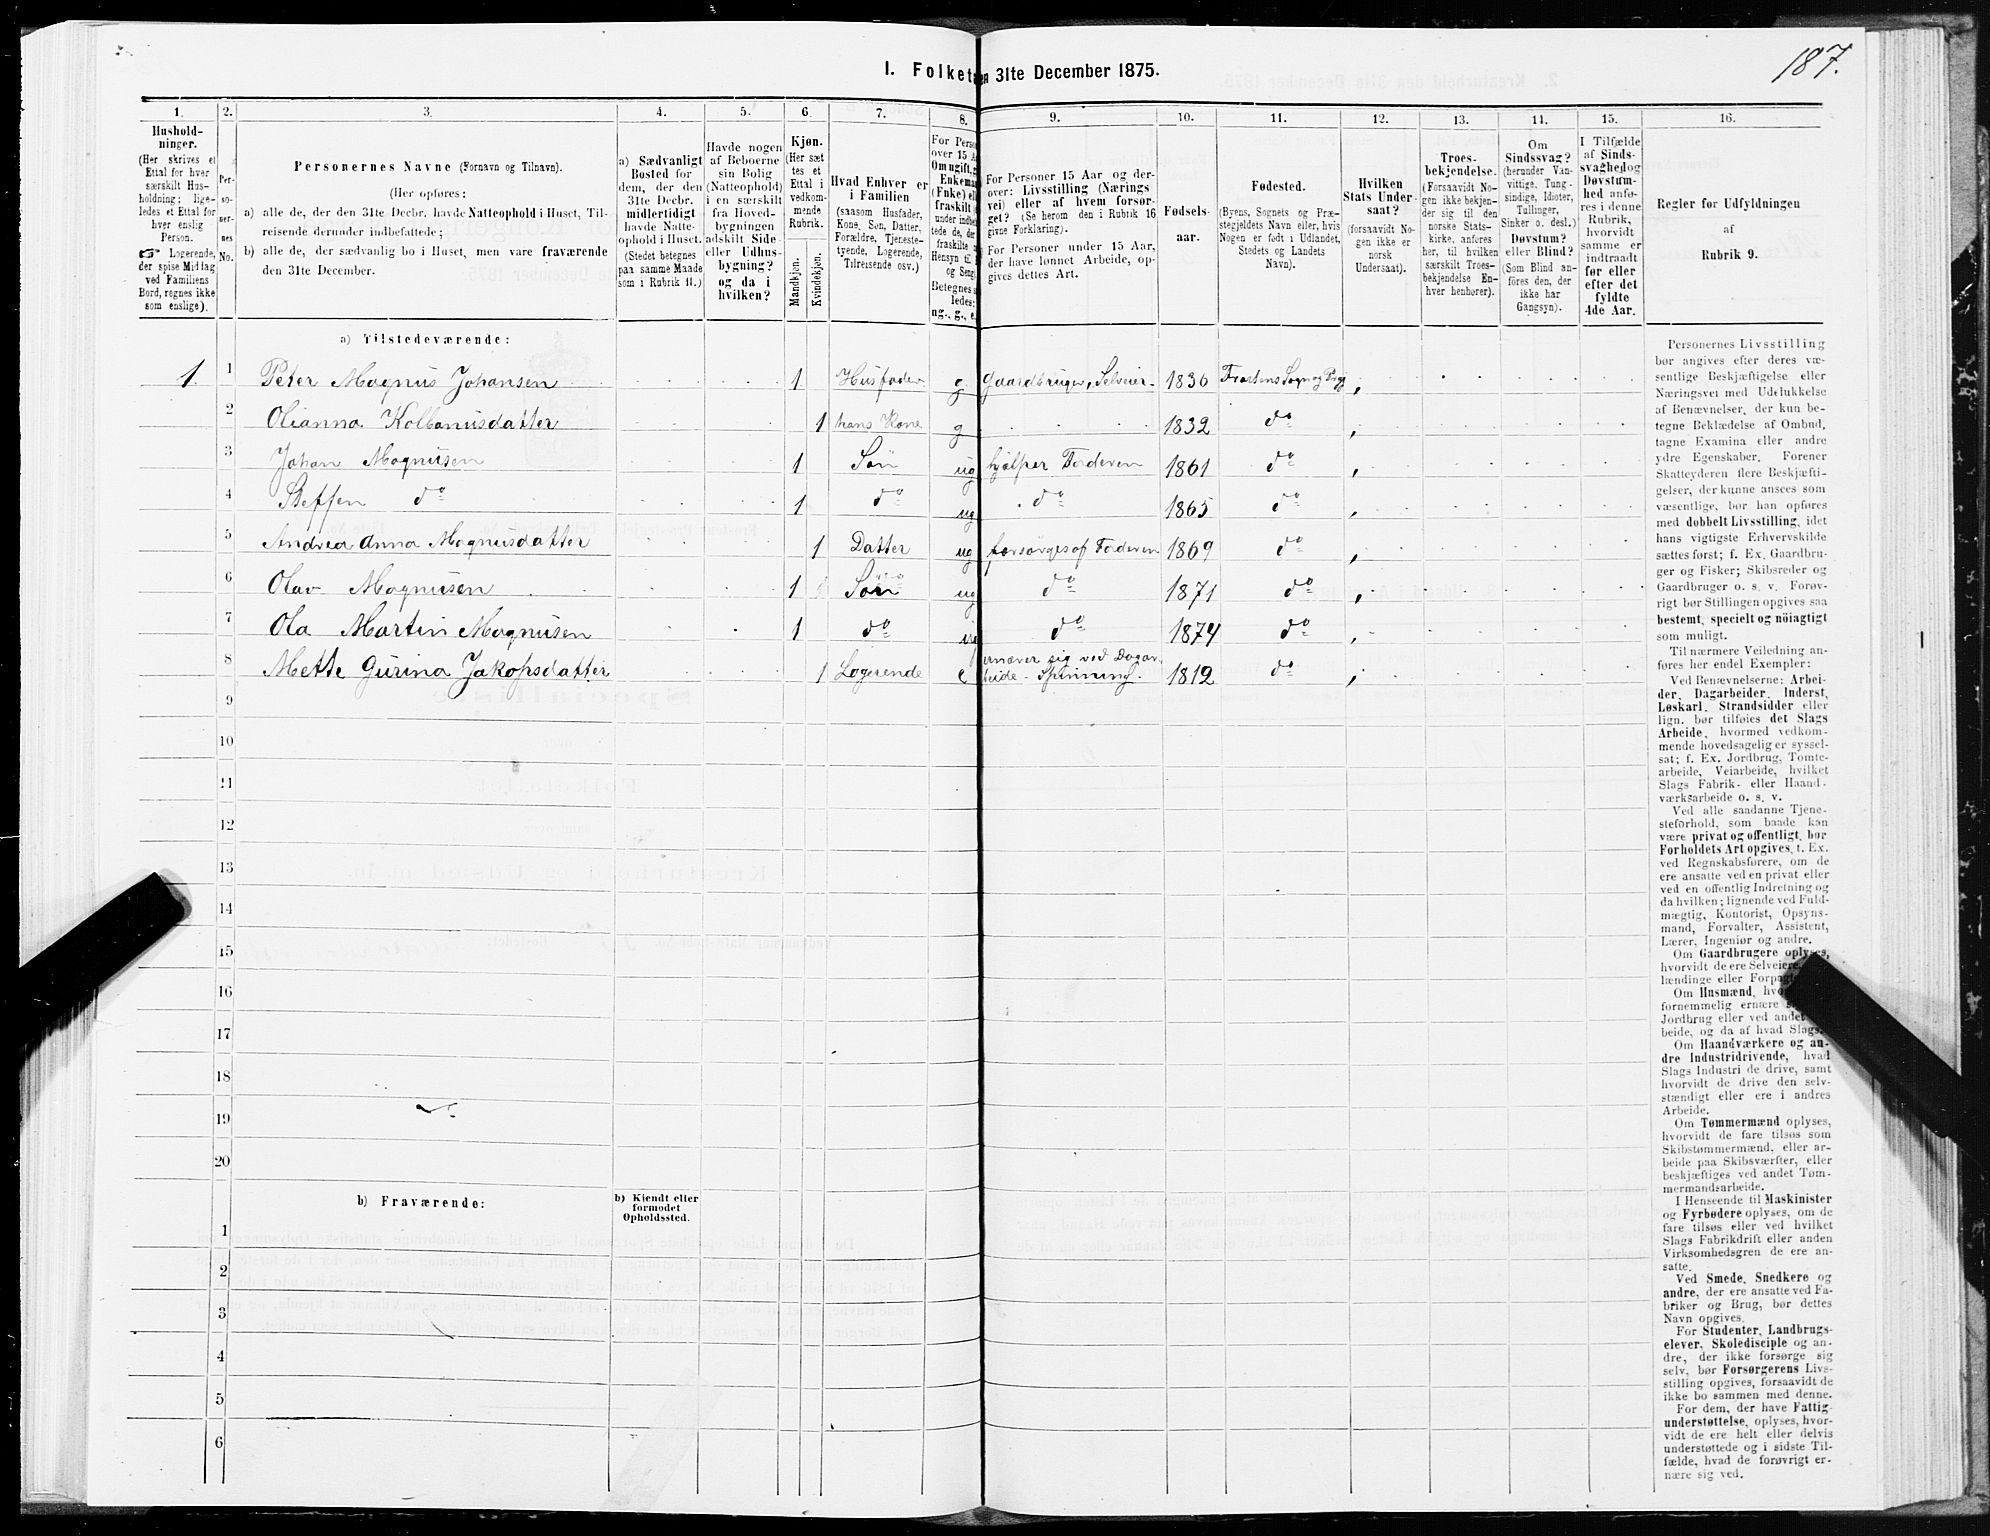 187.
I. Folketa en 31te December 1875.
1. 2. 3. 4. 5. 6. 7. 8. 9. 10. 11. 12. 13. 14. 15. 16.
Hushold-
ninger.
(Her skrives et
Ettal for hver
særskilt Hus-
holdning; lige-
ledes et Ettal for
hver enslig
Person.
☞ Logerende,
der spise Middag
ved Familiens
Bord, regnes ikke
som enslige).
Per-
so-
ner-
nes
No.
Personernes Navne (Fornavn og Tilnavn).
(Her opføres:
a) alle de, der den 31te Decbr. havde Natteophold i Huset, Til-
reisende derunder indbefattede;
b) alle de, der sædvanlig bo i Huset, men vare fraværende
den 31te December.
a) Sædvanligt
Bosted for
dem, der den
31te Decbr.
midlertidigt
havde Natte-
ophold i Huset.
(Stedet betegnes
paa samme Maade
som i Rubrik 11.)
Havde nogen
af Beboerne
sin Bolig
(Natteophold)
i en særskilt
fra Hoved-
bygningen
adskilt Side-
eller Udhus-
bygning?
og da i
hvilken?
Kjøn.
(Her sæt
tes et
Ettal i
vedkom-
mende
Rubrik.
Mandkjøn.
Kvindekjøn.
Hvad Enhver er
i Familien
(saasom Husfader,
Kone, Søn, Datter,
Forældre, Tjeneste-
tyende, Logerende,
Tilreisende osv.)
For Perso
over 15 A
Om ugift, g
Enkema
(Enke) ell
fraskilt
under indbe
tede de,
fraskilte
Hensyn til
og Seng
Betegnes s
ledes:
ug., g., e.
For Personer 15 Aar og der-
over: Livsstilling (Nærings
vei) eller af hvem forsør-
get? (Se herom den i Rubrik 16
givne Forklaring).
For Personer under 15 Aar,
der have lønnet Arbeide, op-
gives dettes Art.
Fødsels-
aar.
Fødested.
(Byens, Sognets og Præ-
stegjeldets Navn eller, hvis
Nogen er født i Udlandet,
Stedets og Landets
Navn).
Hvilken
Stats Under-
saat?
(forsaavidt No-
gen ikke er
norsk
Undersaat).
Troes-
bekjendelse.
(Forsaavidt No-
gen ikke bekjen-
der sig til den
norske Stats-
kirke, anføres
her, til hvilken
særskilt Troes-
bekjendelse En-
hver henhører).
Om
Sindssvag?
(herunder Van-
vittige, Tung-
sindige, Idioter,
Tullinger,
Sinker o. desl.)
Døvstum?
eller Blind?
(Som Blind an-
føres den, der
ikke har
Gangsyn).
I Tilfælde
af Sinds-
svaghed og
Døvstum-
hed anfø-
res i denne
Rubrik,
hvorvidt
samme er
indtraadt
før eller
efter det
fyldte
4de Aar.
Regler for Udfyldningen
af
Rubrik 9.
a) Tilstedeværende:
1 1 Peter Magnus Johansen 1 Husfader g Gaardbruger, Selveier 1836 Frostens Sogn og Prgj
2 Olianna Kolbanusdatter 1 hans Kone g 1832 do
3 Johan Magnusen 1 Søn ug hjælper Faderen 1861 do
4 Steffen do 1 do ug do 1865 do
5 Andrea Anna Magnusdatter 1 Datter ug forsørges af Faderen 1869 do
6 Olav Magnusen 1 Søn ug do 1871 do
7 Ola Martin Magnusen 1 do ug do 1874 do
8 Mette Gurina Jakopsdatter 1 Logerende e ernærer sig ved Dagar-
beide - Spinning. 1812 do
9
10
11
12
13
14
15
16
17
18
19
20
b) Fraværende:
b) Kjendt eller
formodet
Opholdssted.
1
2
3
4
5
6
Personernes Livsstilling
bør angives efter deres væ-
sentlige Beskjæftigelse eller
Næringsvei med Udelukkelse
af Benævnelser, der kun be-
tegne Beklædelse af Ombud,
tagne Examina eller andre
ydre Egenskaber. Forener
Skatteyderen flere Beskjæfti-
gelser, der kunne ansees som
væsentlige, bør han opføres
med dobbelt Livsstilling, idet
hans vigtigste Erhvervskilde
sættes først; f. Ex. Gaardbru-
ger og Fisker; Skibsreder og
Gaardbruger o. s. v. Forøv-
rigt bør Stillingen opgives saa
bestemt, specielt og nöiagtigt
som muligt.
Til nærmere Veiledning an-
føres her endel Exempler:
Ved Benævnelserne: Arbei-
der, Dagarbeider, Inderst,
Løskarl, Strandsidder eller
lign. bør tilføies det Slags
Arbeide, hvormed vedkom-
mende hovedsagelig er syssel-
sat; f. Ex. Jordbrug, Tomte-
arbeide, Veiarbeide, hvilket
Slags Fabrik- eller Haand-
værksarbeide o. s. v.
Ved alle saadanne Tjene-
steforhold, som baade kan
være privat og offentligt, bør
Forholdets Art opgives, t. Ex.
ved Regnskabsførere, om de
ere ansatte ved en privat eller
ved en offentlig Indretning og
da hvilken; lignende ved Fuld-
mægtig, Kontorist, Opsyns-
mand, Forvalter, Assistent,
Lærer, Ingeniør og andre.
Om Gaardbrugere oplyses,
hvorvidt de ere Selveiere,
lændinge eller Forpagt
Om Husmænd, hvo
fornemmelig ernære s
Jordbrug eller ved andet
beide, og da af hvad Slags.
Om Haandværkere og an-
dre Industridrivende, hvad
Slags Industri de drive, samt
hvorvidt de drive den selv-
stændigt eller ere i andres
Arbeide.
Om Tømmermænd oplyses,
hvorvidt de fare tilsøs som
Skibstømmermænd, eller ar-
beide paa Skibsværfter, eller
beskjæftiges ved andet Tøm-
mermandsarbeide.
I Henseende til Maskinister
og Fyrbødere oplyses, om de
fare tilsøs eller ved hvilket
Slags Fabrikdrift eller anden
Virksomhedsgren de ere an-
satte.
Ved Smede, Snedkere og
andre, der ere ansatte ved Fa-
briker og Brug, bør dettes
Navn opgives.
For Studenter, Landbrugs-
elever, Skoledisciple og an-
dre, der ikke forsørge sig
selv, bør Forsørgerens Livs-
stilling opgives, forsaavidt de
ikke bo sammen med denne.
For dem, der have Fattig-
understøttelse, oplyses, hvor-
vidt de ere helt eller delvis
understøttede og i sidste Til-
fælde, hvad de forøvrigt er-
nære sig ved.